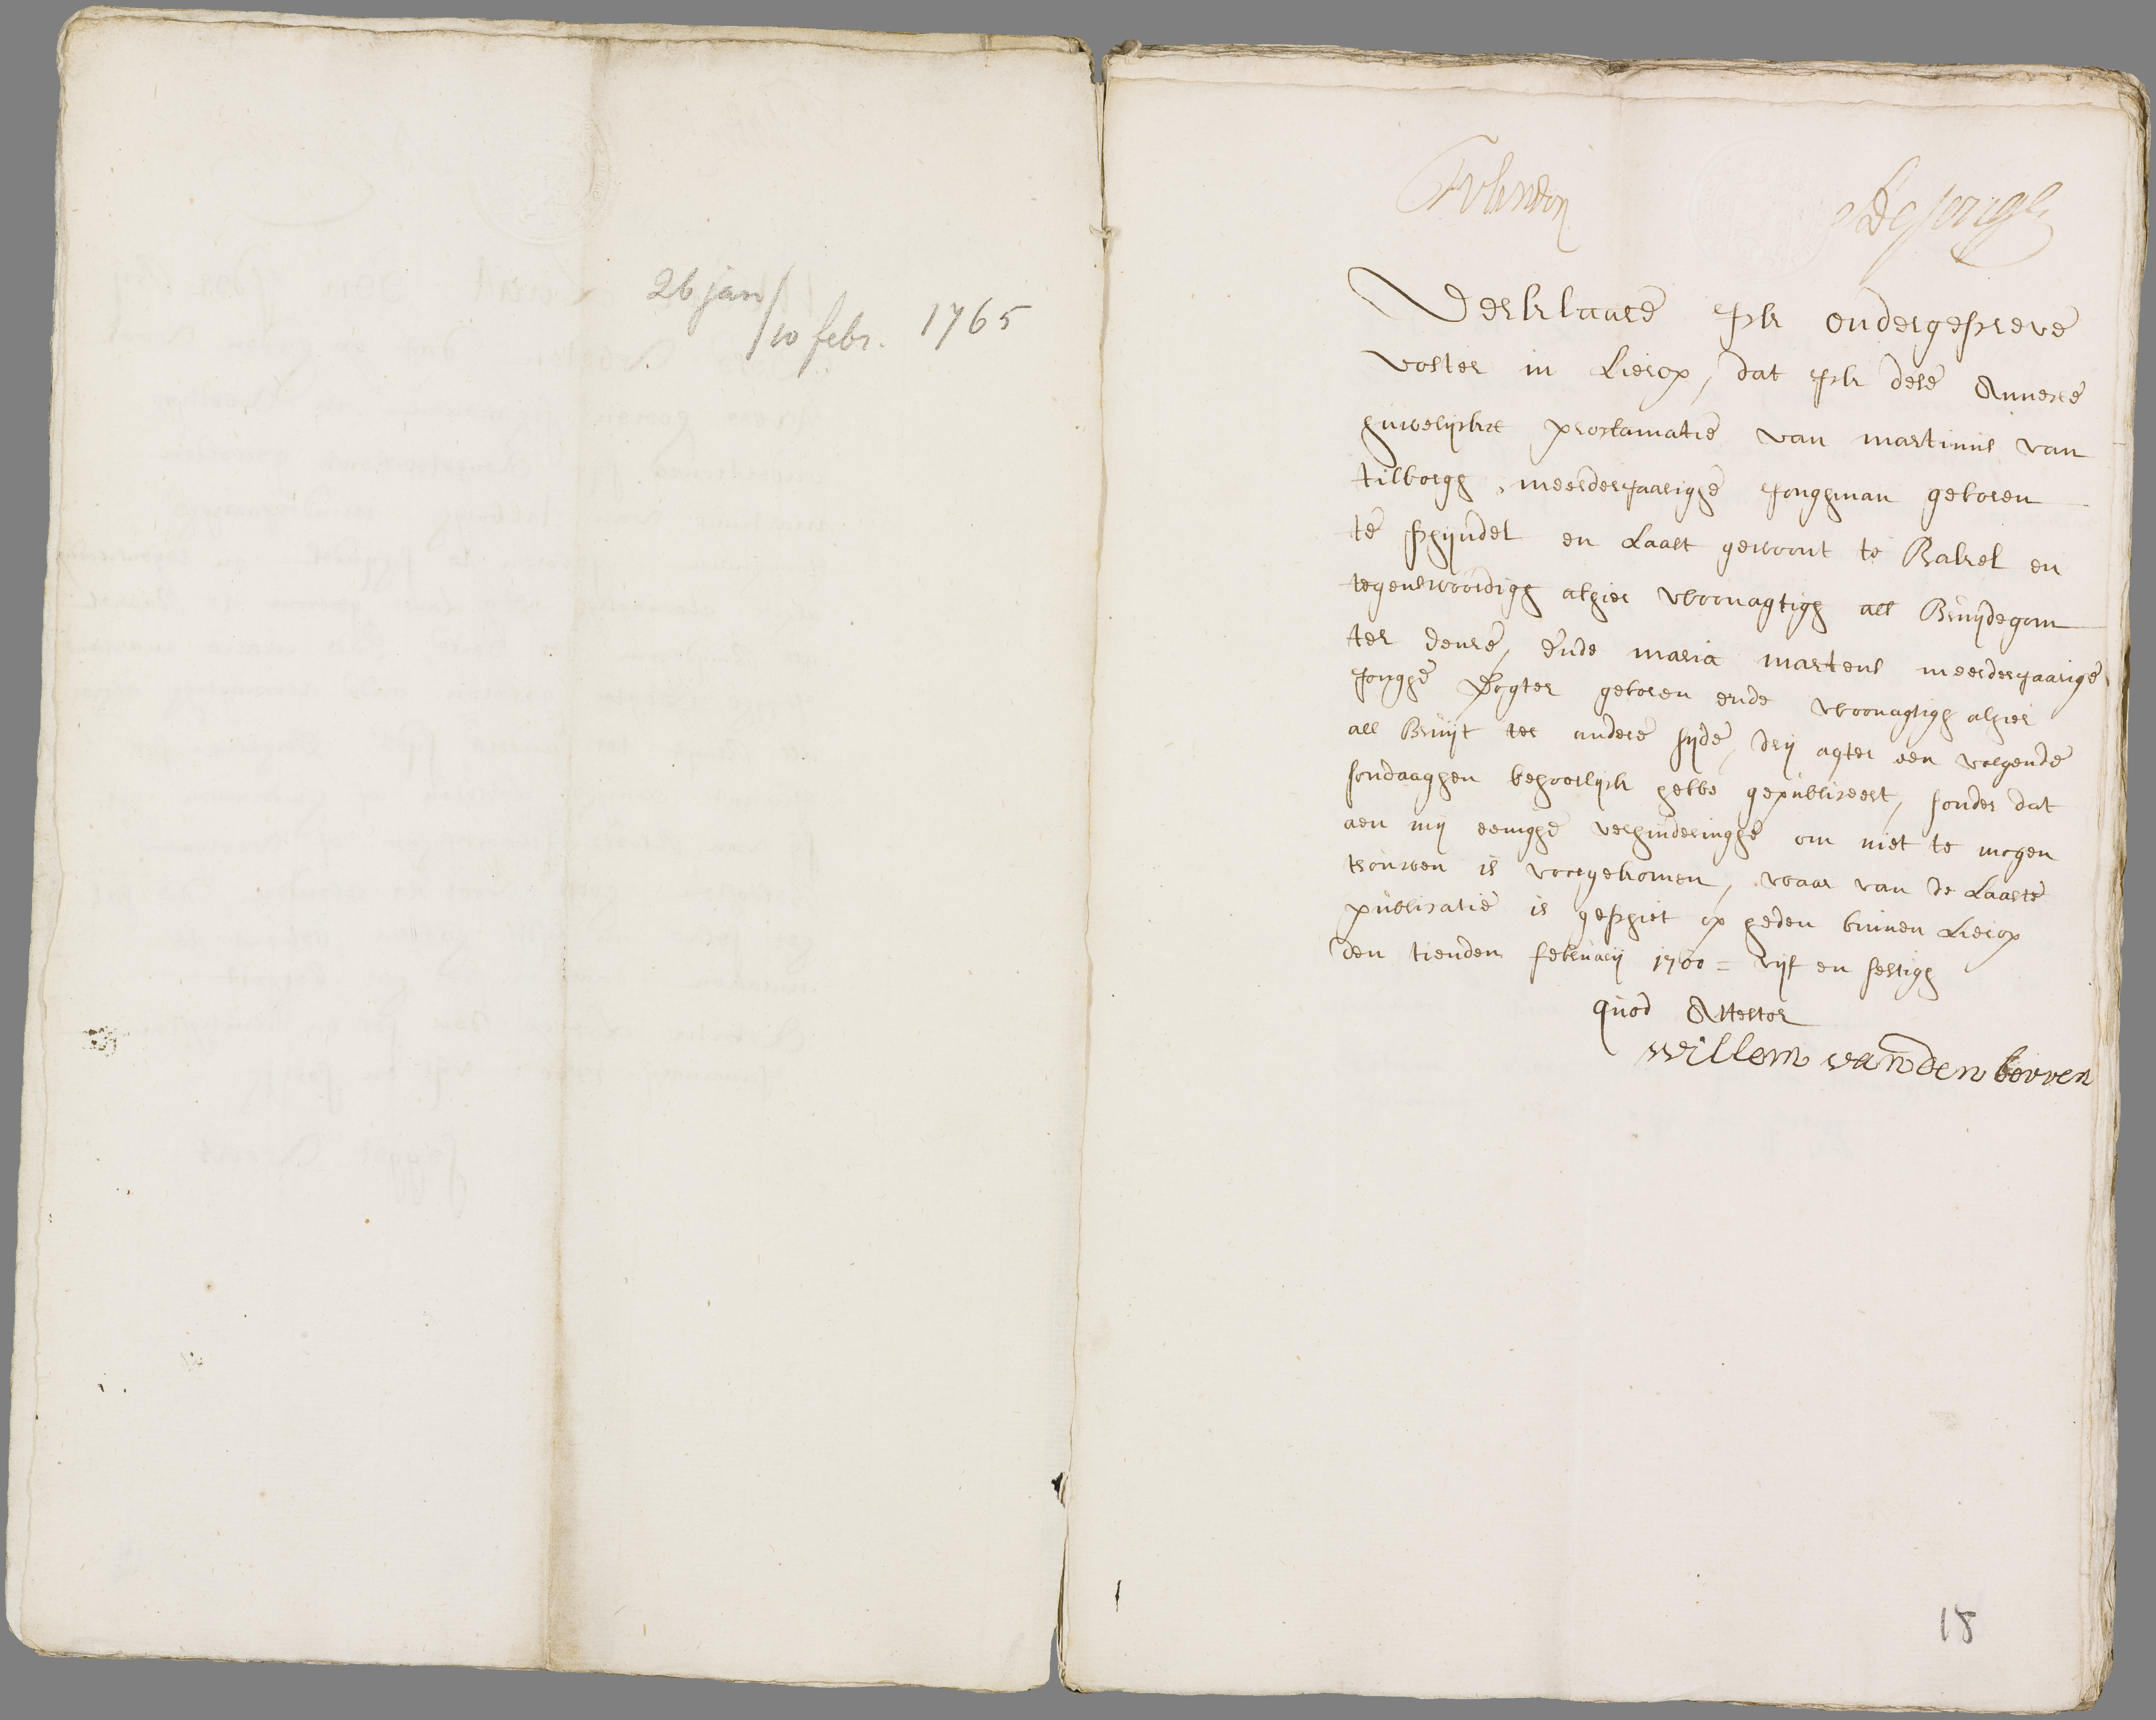 26 jan/
10 febr. 1765
De Jongh
Verklaare Ick ondergescreve
voster in Lierop, dat Ick dese Annexe
huwelyckx proclamatie van martinus van
tilborgh, meerderjaarighe Jonghman geboren
te schijndel en Laast gewoont te Bakel en
tegenswoordigh alhier woonagtigh als Bruijdegom
ter eenre, ende maria martens meerderjaarige
Jonghe Dogter geboren ende woonagtigh alhier
als Bruijt ter andere sijde, drij agter een volgende
sondaaghen behoorlijck hebbe gepubliceert, sonder dat
aen mij eenighe verhinderinghe om niet te mogen
trouwen is voorgekomen, waar van de Laaste
publicatie is geschiet op heden binnen Lierop
den tienden februarij 1700 = vijf en sestigh
quod Attestor
willem van den boven
18